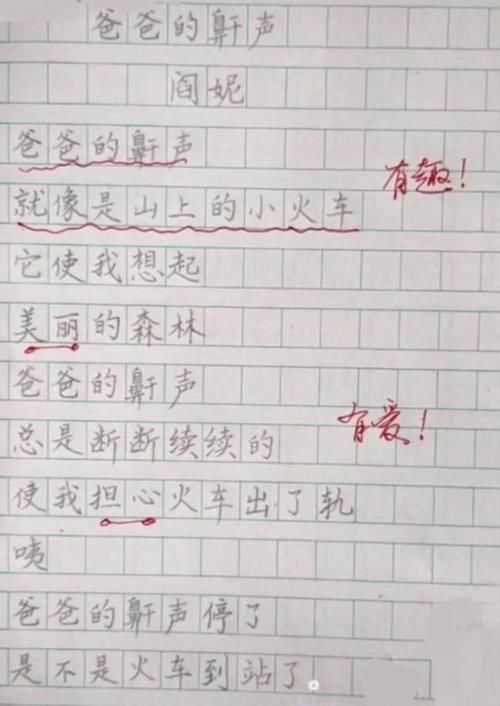 爸爸的鼾声
阎妮
爸爸的鼾声
有趣！
就像是山上的小火车
它使我想起
美丽的森林
爸爸的鼾声
有爱！
总是断断续续的
使我担心火车出了轨
咦
爸爸的鼾声停了
是不是火车到站了。